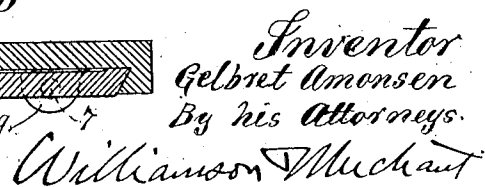 Inventor
Gelbret Amonsen
By his Attorneys.
7
Williamson & Merchant